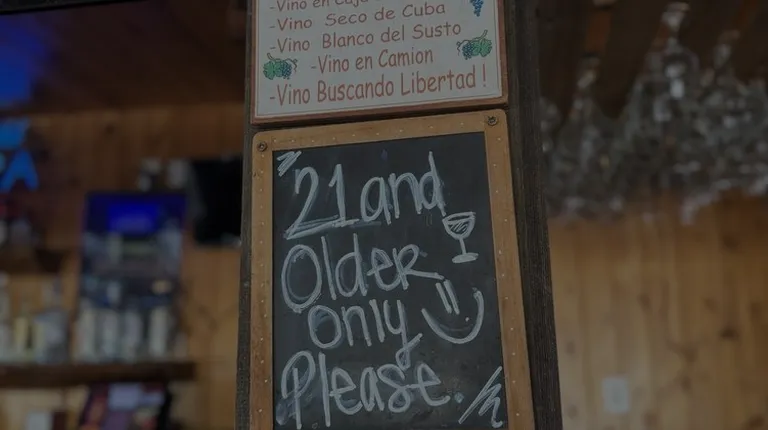 -Vino Seco de Cuba
-Vino Blanco del Susto
-Vino en Camion
-Vino Buscando Libertad!
21 and
Older
only
Please.